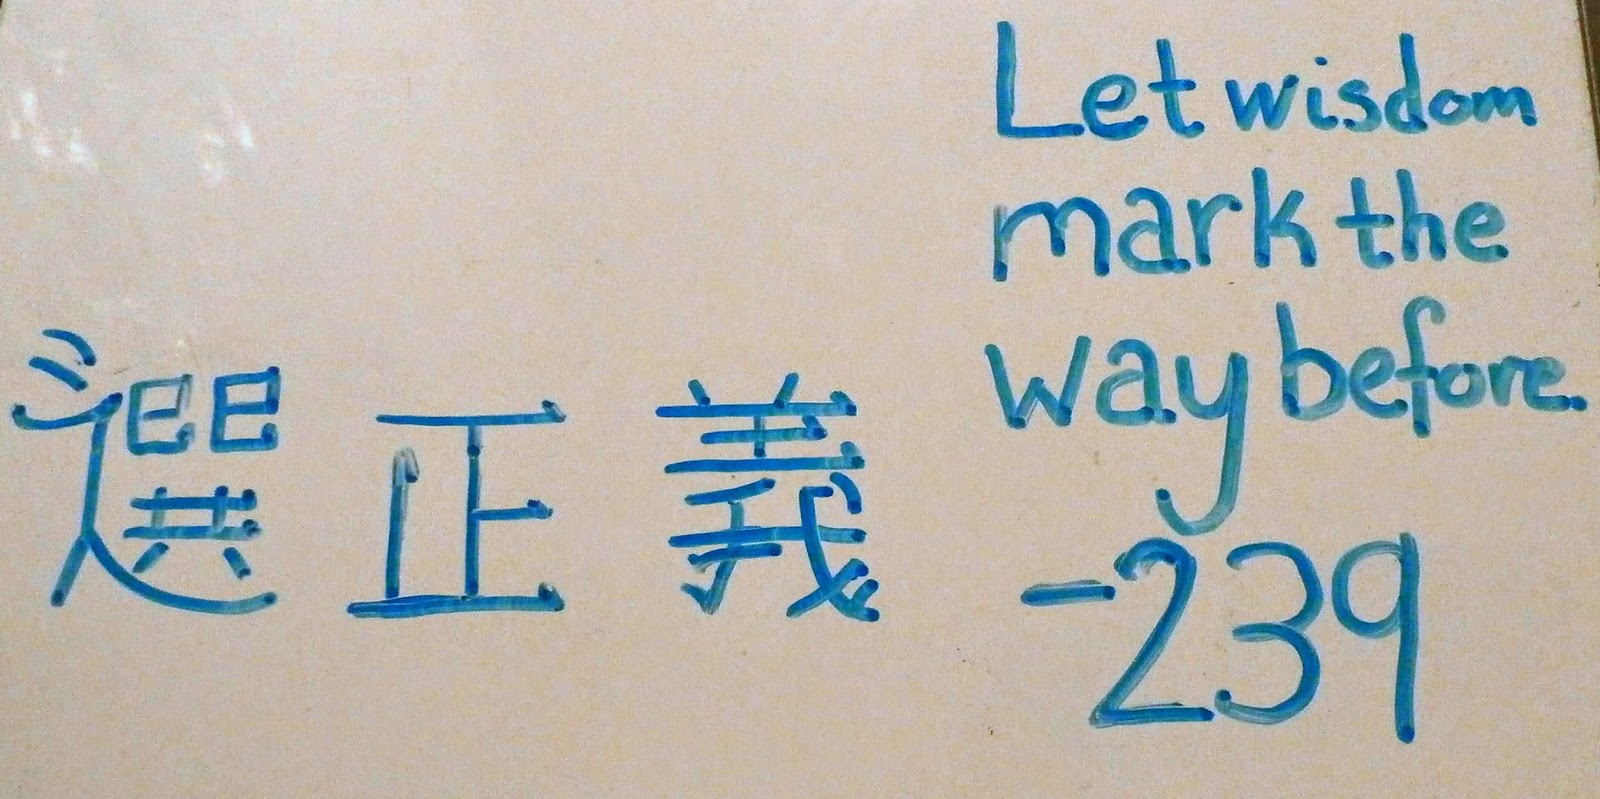 選正義
Let wisdom
mark the
way before.
-239